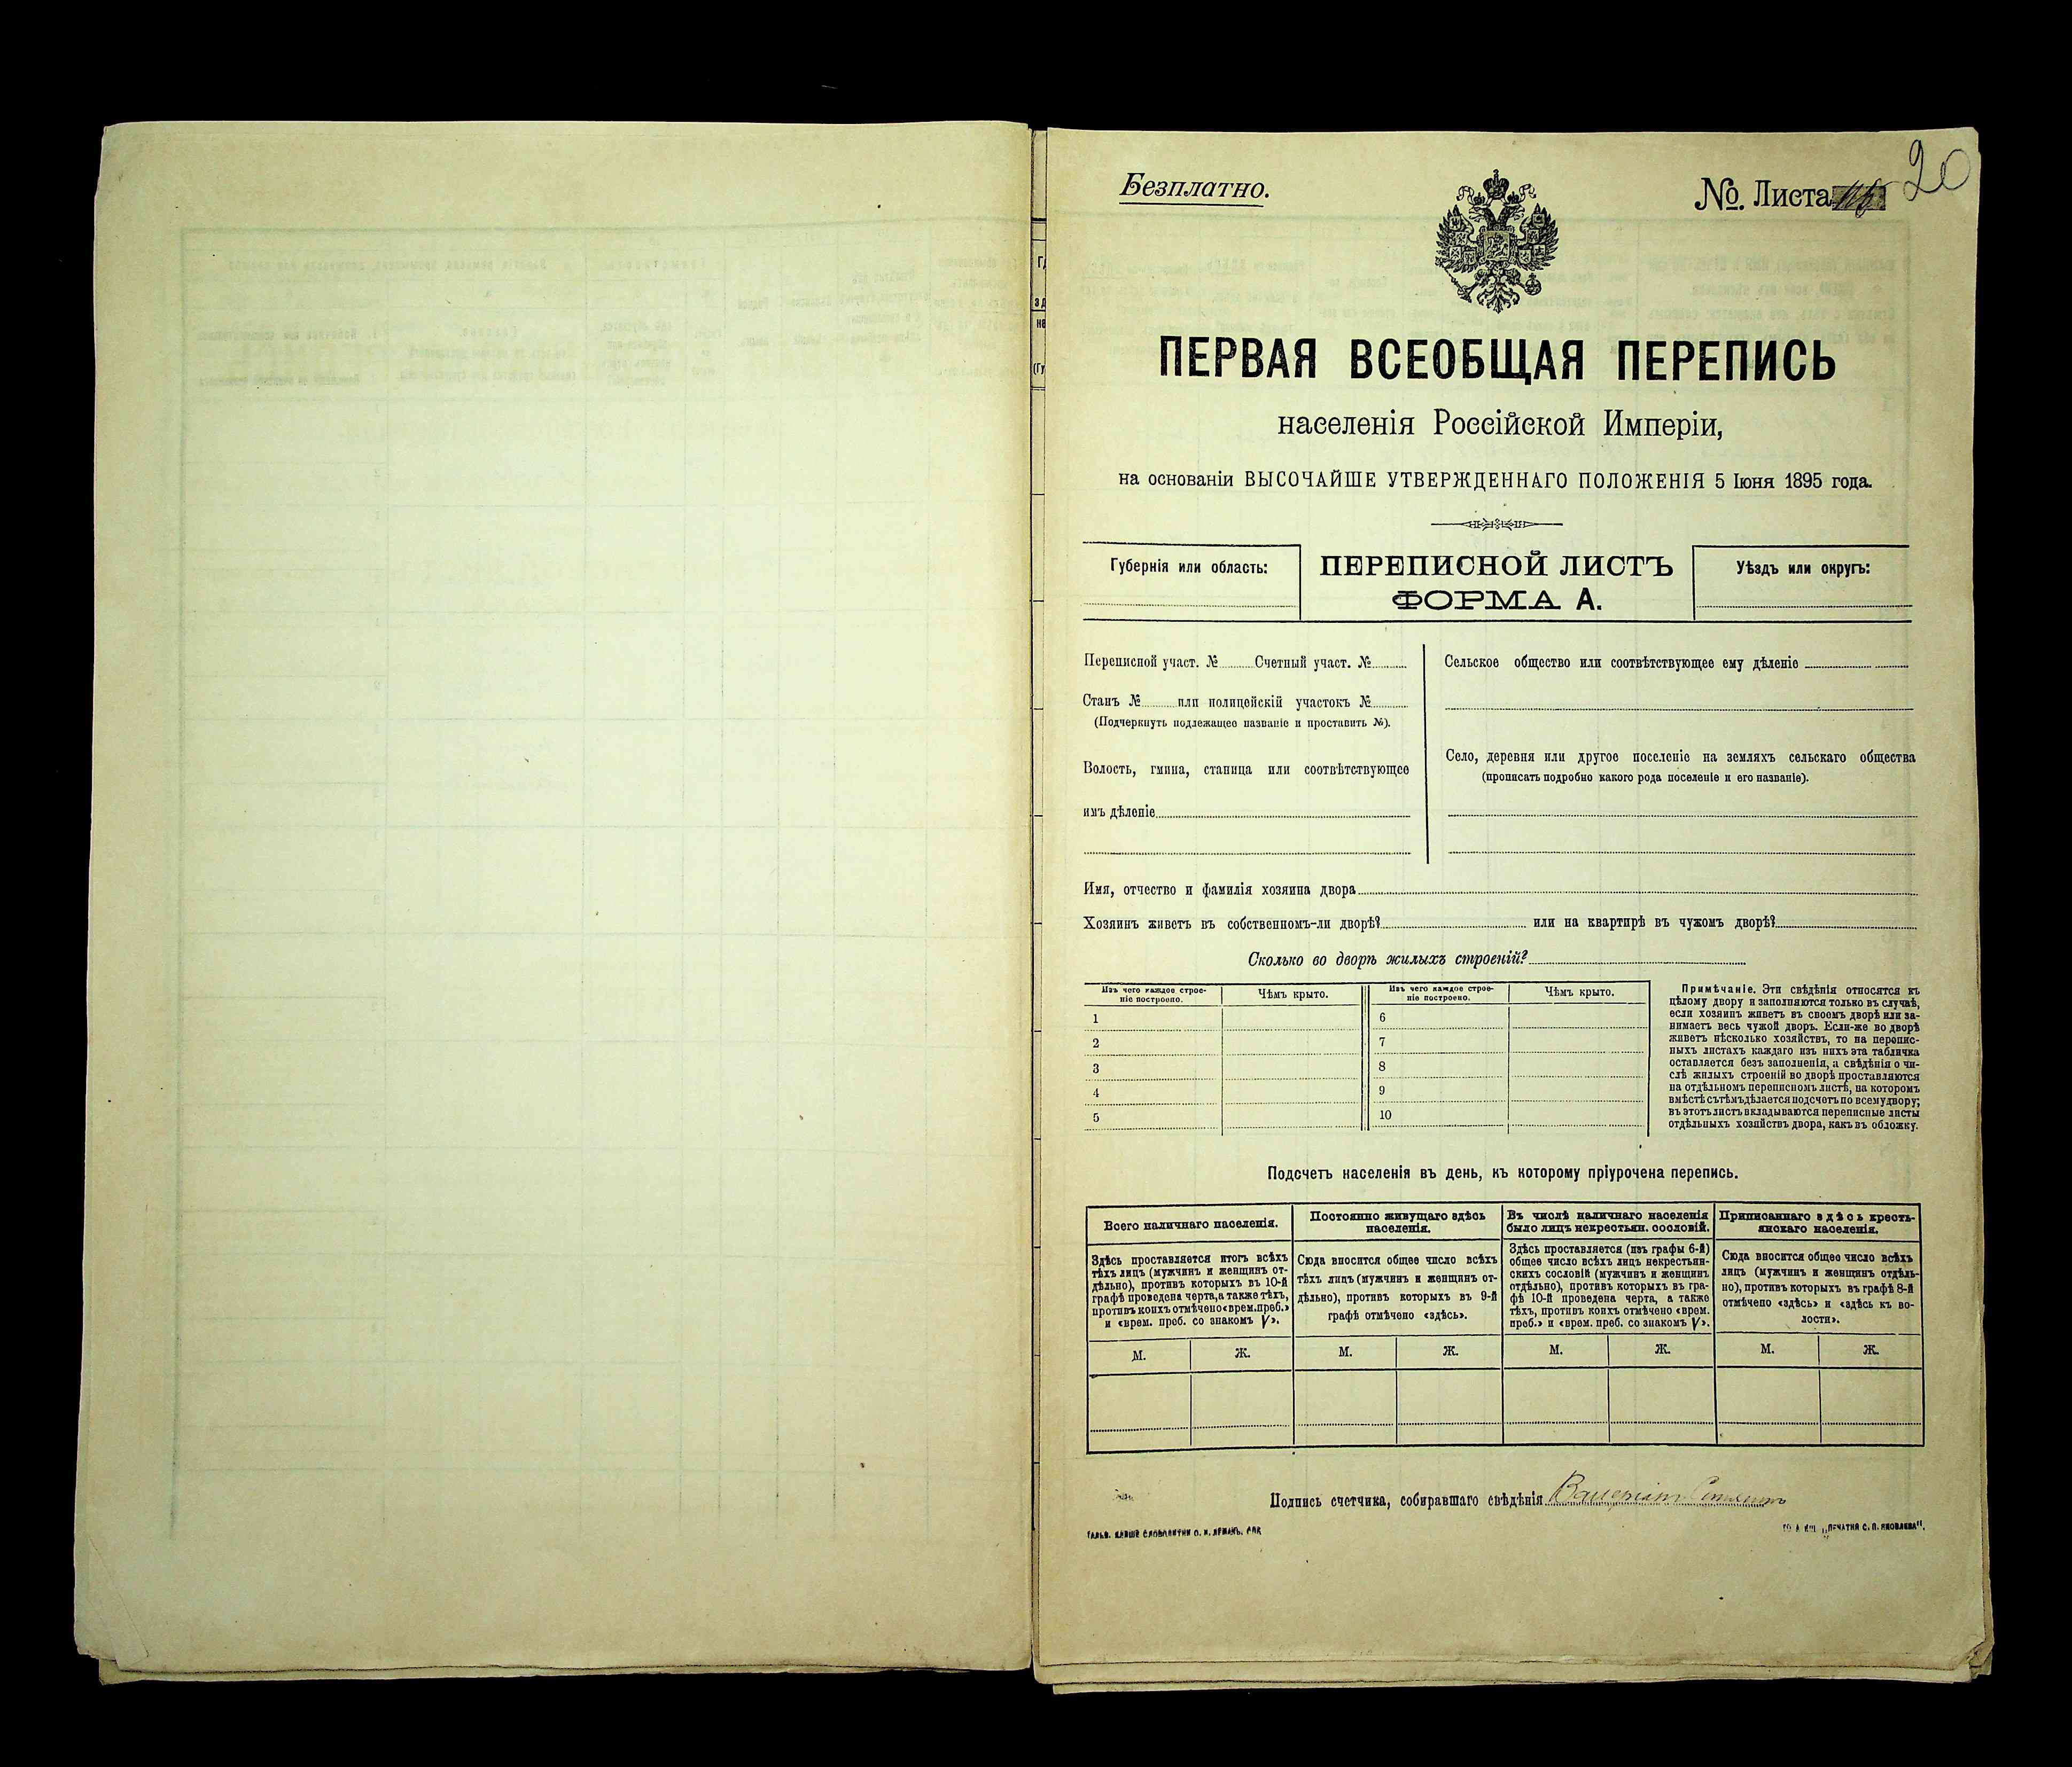 Безплатно.
№. Листа
20
ПЕРВАЯ ВСЕОБЩАЯ ПЕРЕПИСЬ
населенія Россійской Имперіи,
на основаніи ВЫСОЧАЙШЕ УТВЕРЖДЕННАГО ПОЛОЖЕНІЯ 5 Іюня 1895 года.
Губернія или область:
ПЕРЕПИСНОЙ ЛИСТЪ
ФОРМА А.
Уѣздъ или округъ:
Переписной участ. № Счетный участ. №
Станъ № или полицейскій участокъ №
(Подчеркнуть подлежащее названіе и проставить №).
Волость, гмина, станица или соотвѣтствующее
имъ дѣленіе
Сельское общество или соотвѣтствующее ему дѣленіе
Село, деревня или другое поселеніе на земляхъ сельскаго общества
(прописать подробно какого рода поселеніе и его названіе).
Имя, отчество и фамилія хозяина двора
Хозяинъ живетъ въ собственномъ-ли дворѣ? или на квартирѣ въ чужомъ дворѣ?
Сколько во дворѣ жилыхъ строеній?
Изъ чего каждое строе-
ніе построено.
Чѣмъ крыто.
1
2
3
4
5
Изъ чего каждое строе-
ніе построено.
Чѣмъ крыто.
6
7
8
9
10
Примѣчаніе. Эти свѣдѣнія относятся къ
цѣлому двору и заполняются только въ случаѣ,
если хозяинъ живетъ въ своемъ дворѣ или за-
нимаетъ весь чужой дворъ. Если-же во дворѣ
живетъ нѣсколько хозяйствъ, то на перепис-
ныхъ листахъ каждаго изъ нихъ эта табличка
оставляется безъ заполненія, а свѣдѣнія о чи-
слѣ жилыхъ строеній во дворѣ проставляются
на отдѣльномъ переписномъ листѣ, на которомъ
вмѣстѣ съ тѣмъ дѣлается подсчетъ по всему двору;
въ этотъ листъ вкладываются переписные листы
отдѣльныхъ хозяйствъ двора, какъ въ обложку.
Подсчетъ населенія въ день, къ которому пріурочена перепись.
Всего наличнаго населенія.
Здѣсь проставляется итогъ всѣхъ
тѣхъ лицъ (мужчинъ и женщинъ от-
дѣльно), противъ которыхъ въ 10-й
графѣ проведена черта, а также тѣхъ,
противъ коихъ отмѣчено «врем. преб.»
и «врем. преб. со знакомъ V».
М. Ж.
Постоянно живущаго здѣсь
населенія.
Сюда вносится общее число всѣхъ
тѣхъ лицъ (мужчинъ и женщинъ от-
дѣльно), противъ которыхъ въ 9-й
графѣ отмѣчено «здѣсь».
М. Ж.
Въ числѣ наличнаго населенія
было лицъ некрестьян. сословій.
Здѣсь проставляется (изъ графы 6-й)
общее число всѣхъ лицъ некрестьян-
скихъ сословій (мужчинъ и женщинъ
отдѣльно), противъ которыхъ въ гра-
фѣ 10-й проведена черта, а также
тѣхъ, противъ коихъ отмѣчено «врем.
преб.» и «врем. преб. со знакомъ V».
М. Ж.
Приписаннаго здѣсь кресть-
янскаго населенія.
Сюда вносится общее число всѣхъ
лицъ (мужчинъ и женщинъ отдѣль-
но), противъ которыхъ въ графѣ 8-й
отмѣчено «здѣсь» и «здѣсь къ во-
лости».
М. Ж.
Подпись счетчика, собиравшаго свѣдѣнія
О. И. ЛЕМАНЪ, СПБ
„ПЕЧАТНЯ С. П. ЯКОВЛЕВА".